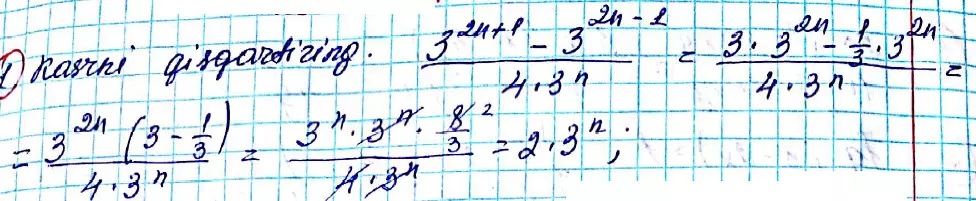 1) Kasrni qisqartiring. \frac{3^{2n+1} - 3^{2n-1}}{4 \cdot 3^n} = \frac{3 \cdot 3^{2n} - \frac{1}{3} \cdot 3^{2n}}{4 \cdot 3^n} =
= \frac{3^{2n} (3 - \frac{1}{3})}{4 \cdot 3^n} = \frac{3^n \cdot 3^n \cdot \frac{8}{3}^2}{4 \cdot 3^n} = 2 \cdot 3^n ;